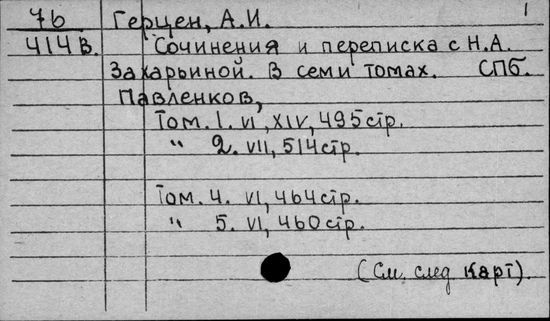 76 Герцен, А.И. 1
414 В. Сочинения и переписка с Н.А.
Захарьиной. В семи томах. СПб.
Павленков,
Том. 1. VI, XIV, 495 стр.
" 2. VII, 514 стр.
Том. 4. VI, 464 стр.
" 5. VI, 460 стр.
(См. след карт).